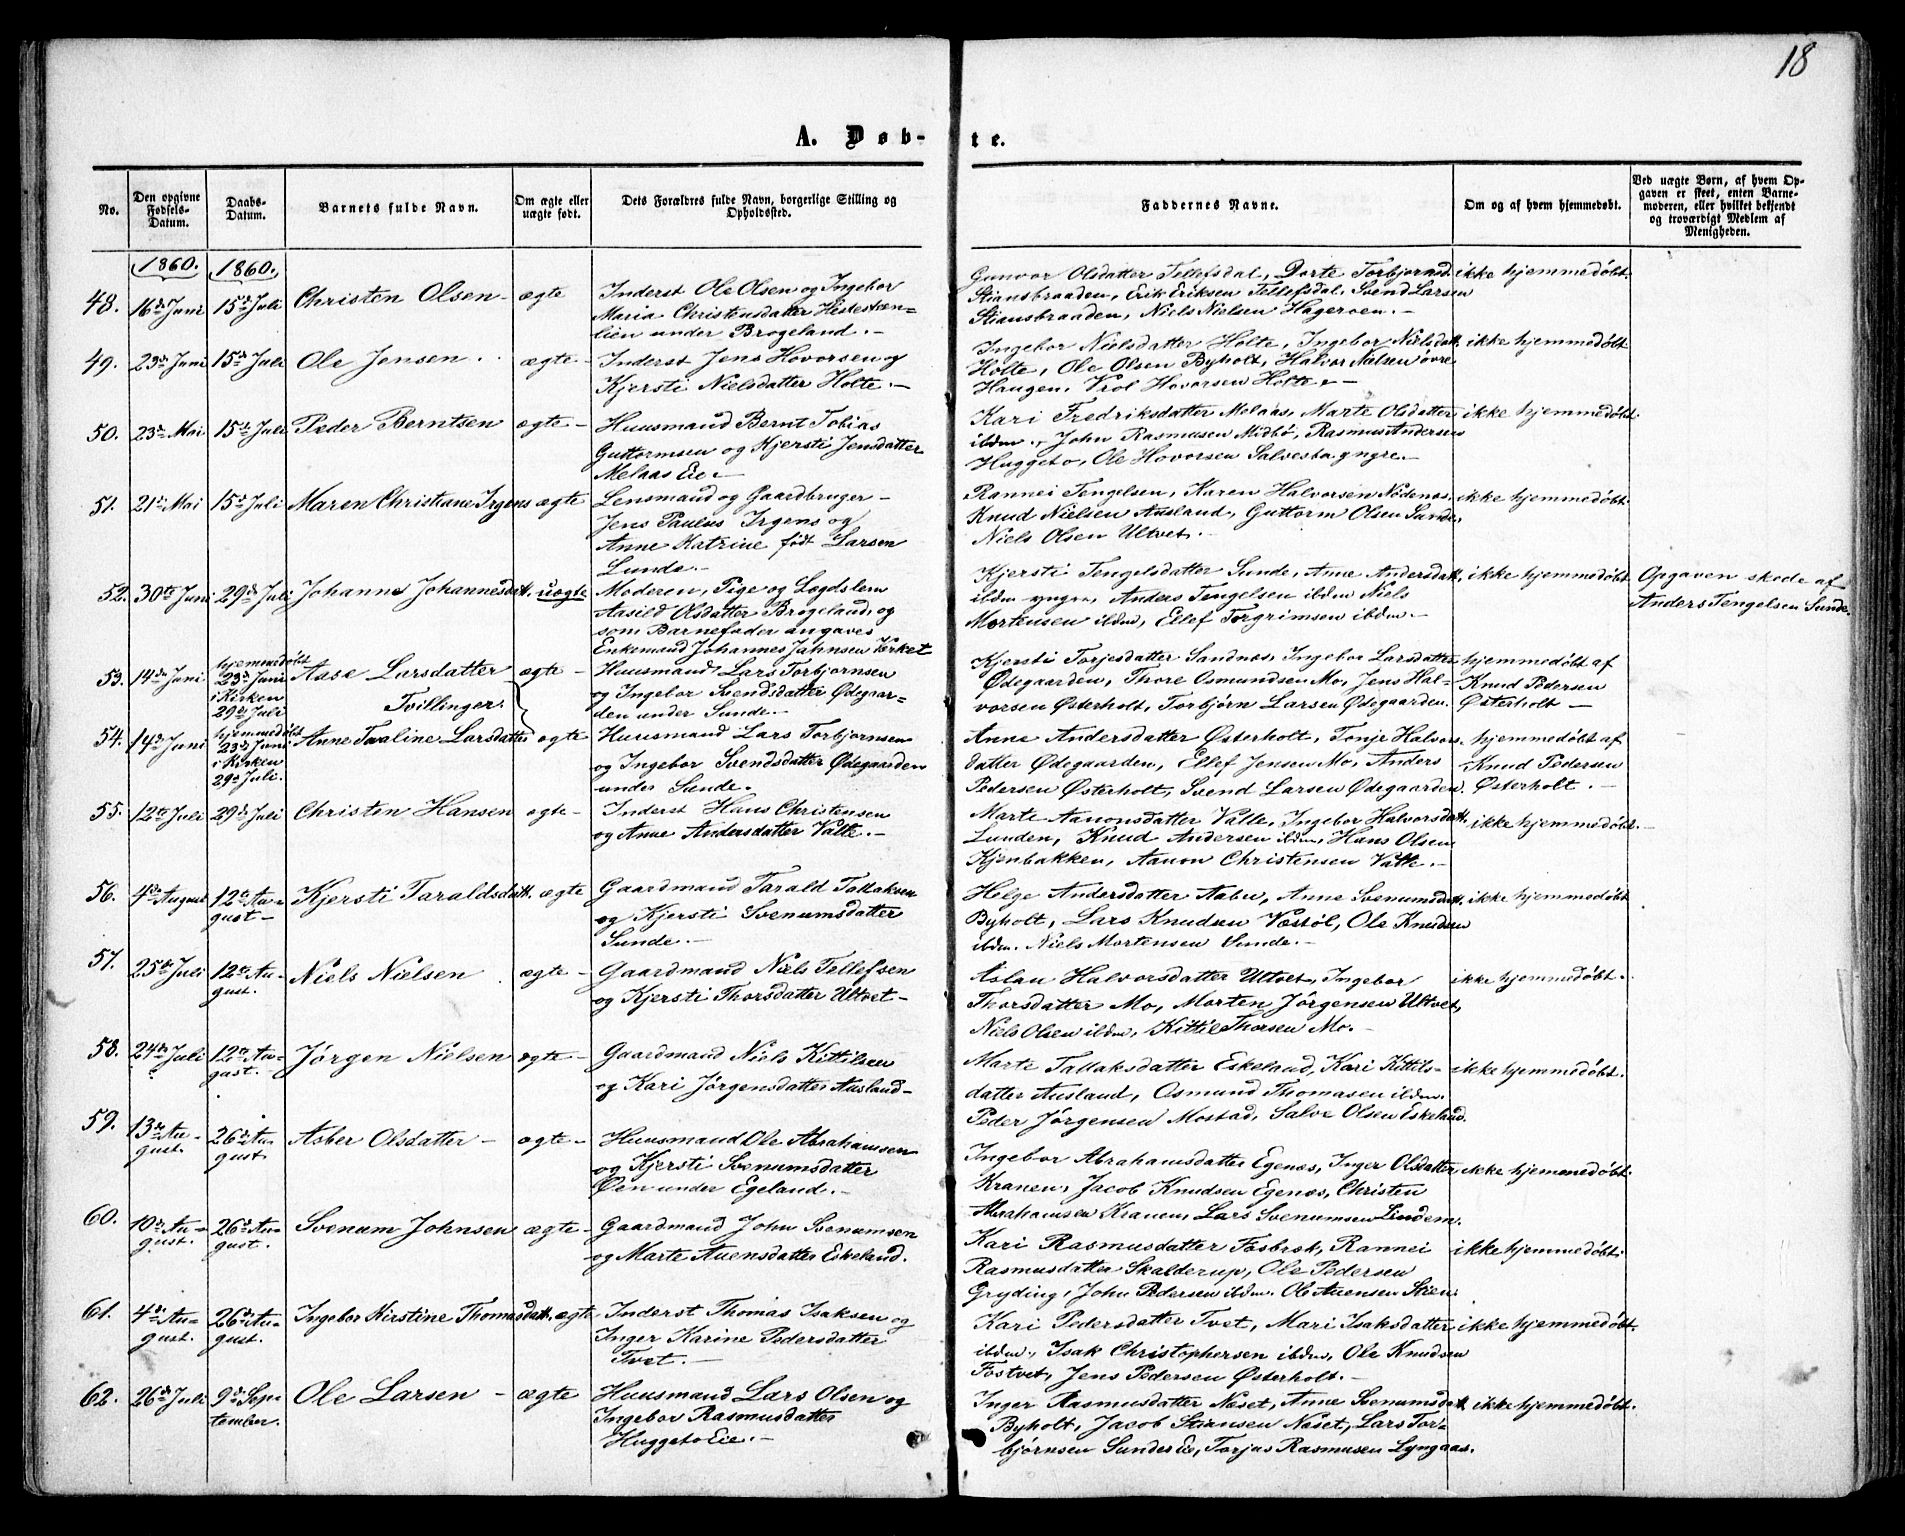 18
A. Døbte.
No. Den opgivne Fødsels-Datum. Daabs-Datum. Barnets fulde Navn. Om ægte eller uægte født. Dets Forældres fulde Navn, borgerlige Stilling og Opholdssted. Faddernes Navne. Om og af hvem hjemmedøbt. Ved uægte Børn, af hvem Opgaven er skeet, enten Barnemoderen, eller hvilket bekjendt og troværdigt Medlem af Menigheden.
1860. 1860.
48. 16de Juni 15de Juli Christen Olsen - ægte Inderst Ole Olsen og Ingebor
Maria Christinsdatter Hestesten-
lien under Brogeland. -
Gunvor Olsdatter Tellefsdal, Dorte Torbjornsd. ikke hjemmedøbt.
Stiansbraaden, Erik Eriksen Tellefsdal, Svend Larsen
Stiansbraaden, Niels Nielsen Hageroen. -
49. 23de Juni 15de Juli Ole Jensen. ægte - Inderst Jens Hovorsen og
Kjersti Nielsdatter Holte. -
Ingebor Nielsdatter Holte, Ingebor Nielsdatt. ikke hjemmedøbt.
Holte, Ole Olsen Byholt, Halvor Nielsen øvre
Haugen, Vrol Hovorsen Holte. -
50. 23de Mai 15de Juli Peder Berntsen ægte - Huusmand Bernt Tobias
Guttormsen og Kjersti Jensdatter
Melaas Eie -
Kari Fredriksdatter Melaas, Marte Olsdatter ikke hjemmedøbt.
ibdm., John Rasmusen Midbö, Rasmus Andersen
Huggeto, Ole Hovorsen Salvesta yngre. -
51. 21de Mai 15de Juli Maren Christiane Irgens ægte Lensmand og Gaardbruger -
Jens Paulus Irgens og
Anne Katrine født Larsen
Lunde. -
Rannei Tengelsen, Karen Halvorsen Nødenæs ikke hjemmedøbt.
Knud Nielsen Ausland, Guttorm Olsen Sunde,
Niels Olsen Ultvet. -
52. 30te Juni 29de Juli Johanne Johannesdatt. uægte Moderen, Pige og Logdslem
Aasild Olsdatter Brogeland, og
som Barnefader angaves
Enkemand Johannes Jahnsen Værket
Kjersti Tengelsdatter Sunde, Anne Andersdatt. ikke hjemmedøbt Opgaven skede af
ibdm yngre, Anders Tengelsen ibdm Niels Anders Tengelsen Sunde.
Mortensen ibdm, Ellef Torgrimsen ibdm. -
53. 14de Juni hjemmedøbt 23de Juni i Kirken 29de Juli Aase Larsdatter ægte - Huusmand Lars Torbjornsen
Tvillinger. og Ingebor Svendsdatter Ødegaar-
den under Sunde. -
Kjersti Torjesdatter Sandnæs, Ingebor Larsdatter hjemmedøbt af
Ødegaarden, Thore Osmundsen Mo, Jens Hal- Knud Pedersen
vorsen Østerholt, Torbjørn Larsen Ødegaarden. Østerholt -
54. 14de Juni hjemmedøbt 23de Juni i Kirken 29de Juli. Anne Tomine Larsdatter ægte Huusmand Lars Torbjornsen
og Ingebor Svendsdatter Ødegaarden
under Sunde.
Anne Andersdatter Østerholt, Tonje Halvors- hjemmedøbt af
datter Ødegaarden, Ellef Jensen Mo, Anders Knud Pedersen
Pedersen Østerholt, Svend Larsen Ødegaarden. Østerholt. -
55. 12te Juli 29de Juli Christen Hansen ægte - Inderst Hans Christensen
og Anne Andersdatter Valle. -
Marte Aanonsdatter Valle, Ingebor Halvorsdatt. ikke hjemmedøbt. -
Lunden, Knud Andersen ibdm, Hans Olsen
Kjenbakken, Aanon Christensen Valle. -
56. 4de August 12te August - Kjersti Taraldsdatt. ægte Gaardmand Tarald Tallaksen
og Kjersti Svenumsdatter
Sunde. -
Helge Andersdatter Aabu, Anne Svenumsdatt. ikke hjemmedøbt
Byholt, Lars Knudsen Væstöl, Ole Knudsen
ibdm. Niels Mortensen Sunde. -
57. 25de Juli 12te August. Niels Nielsen ægte - Gaardmand Niels Tellefsen
og Kjersti Thorsdatter Ultvet -
Aslau Halvorsdatter Ultvet, Ingebor ikke hjemmedøbt.
Thorsdatter Mo, Morten Jörgensen Ultvet,
Niels Olsen ibdm, Kittil Thorsen Mo. -
58. 24de Juli 12te August. - Jörgen Nielsen ægte - Gaardmand Niels Kittilsen
og Kari Jörgensdatter Ausland -
Marte Tallaksdatter Eskeland, Kari Kittils- ikke hjemmedøbt.
datter Ausland, Osmund Thomasen ibdm.
Peder Jörgensen Mostad, Salve Olsen Eskeland.
59. 13de August. 26de August Asber Olsdatter - ægte - Huusmand Ole Abrahamsen
og Kjersti Svenumsdatter
Öen under Egeland. -
Ingebor Abrahamsdatter Egenæs, Inger Olsdatter ikke hjemmedøbt.
Kranen, Jacob Knudsen Egenæs, Christen
Abrahamsen Kranen, Lars Svenumsen Lindem.
60. 10de August. 26de August. Svenum Johnsen ægte - Gaardmand John Svenumsen
og Marte Auensdatter Eskeland.
Kari Rasmusdatter Fosbræk, Rannei ikke hjemmedøbt.
Rasmusdatter Skalderup, Ole Pedersen
Gryding, John Pedersen ibdm. Ole Auensen Stien.
61. 4de August. 26de August. Ingebor Kirstine Thomasdatt. ægte Inderst Thomas Isaksen og
Inger Karine Pedersdatter
Tvet. -
Kari Pedersdatter Tvet, Mari Isaksdatter ikke hjemmedøbt.
ibdm., Isak Christophersen ibdm, Ole Knudsen
Fostvet, Jens Pedersen Østerholt. -
62. 26de Juli 9de September. Ole Larsen - ægte Huusmand Lars Olsen og
Ingebor Rasmusdatter
Huggeto Eie. -
Inger Rasmusdatter Næset, Anne Svenumsdatt. ikke hjemmedøbt.
Byholt, Jacob Stiansen Næset, Lars Tor-
björnsen Sunde Eie, Torjus Rasmusen Lyngaas.